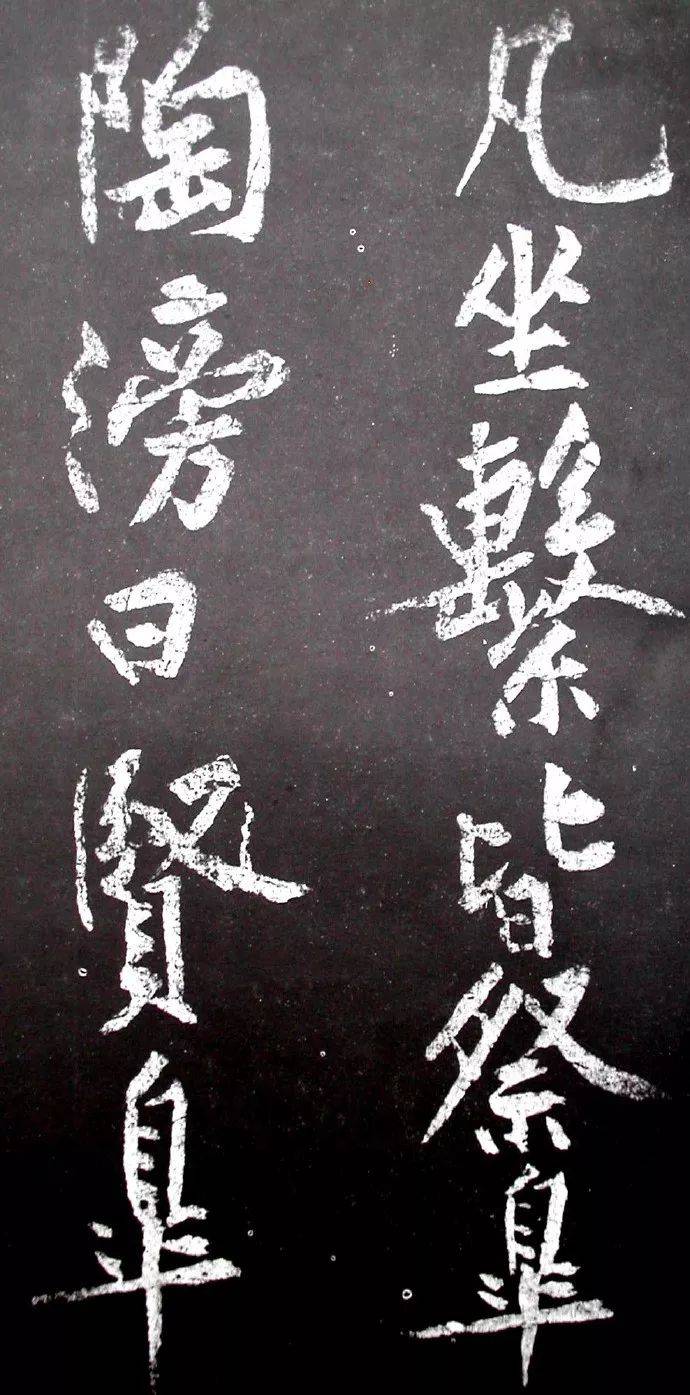 凡坐繫皆祭皐
陶滂曰賢皐